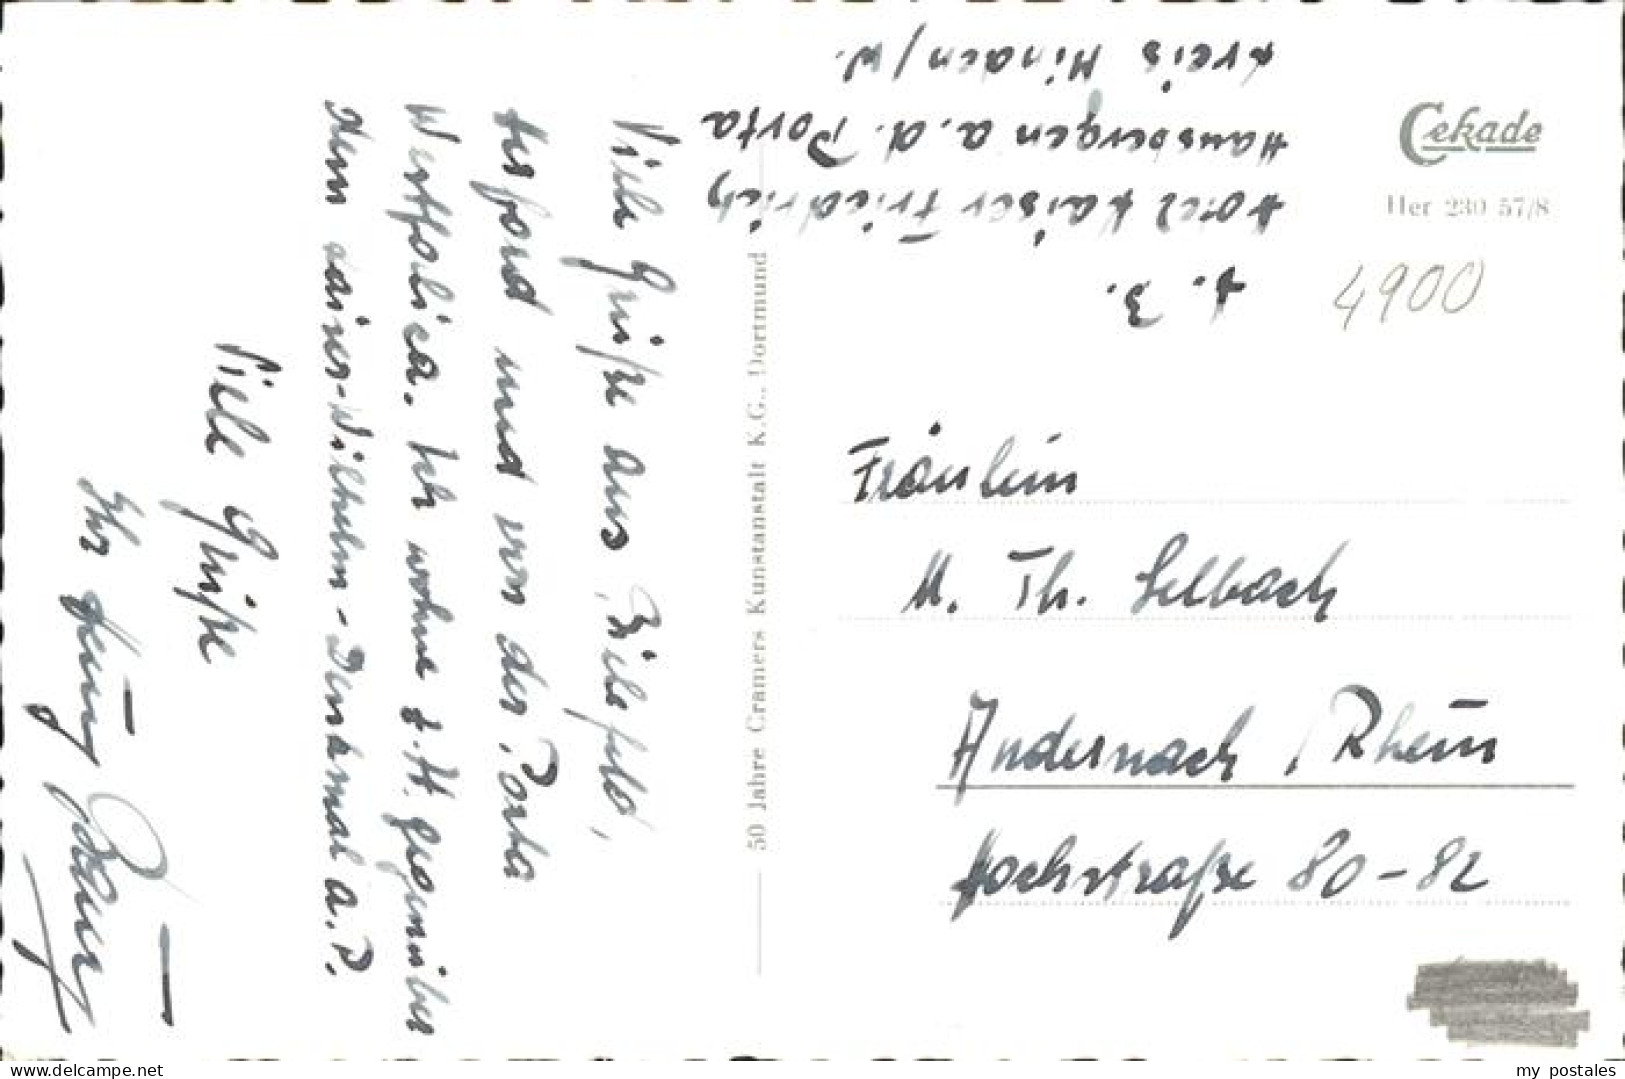 Viele Grüße aus Bielefeld,
Herford und von der Porta
Westfalica. Ich wohne z. Zt. gegenüber
dem Kaiser-Wilhelm-Denkmal a. P.
Viele Grüße
Ihr
50 Jahre Cramers Kunstanstalt K.G., Dortmund
z. Z.
Hotel Kaiser Friedrich
Hausbergen a. d. Porta
Kreis Minden/W.
Cekade
Her 230 57/8
4900
Fräulein
M. Th. Selbach
Andernach / Rhein
Hochstraße 80-82
delcampe.net
my_postales